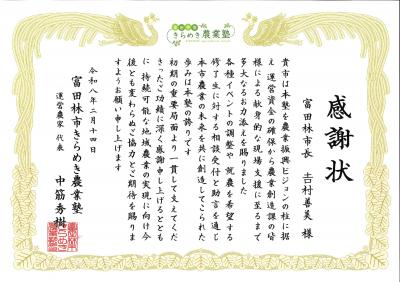 きらめき農業塾
感謝状
富田林市長 吉村善美 様
貴市は本塾を農業振興ビジョンの柱に据
え運営資金の確保から農業創造課の皆
様による献身的な現場支援に至るまで
多大なるお力添えを賜りました
各種イベントの調整や就農を希望する
修了生に対する相談受付と助言を通じ
本市農業の未来を共に創造してこられた
歩みは本塾の誇りです
初期の重要局面より一貫して支えてくだ
さったご功績に深く感謝申し上げるととも
に持続可能な地域農業の実現に向け今
後とも変わらぬご協力とご期待を賜りま
すようお願い申し上げます
令和八年二月十四日
富田林市きらめき農業塾
運営農家 代表 中筋秀樹